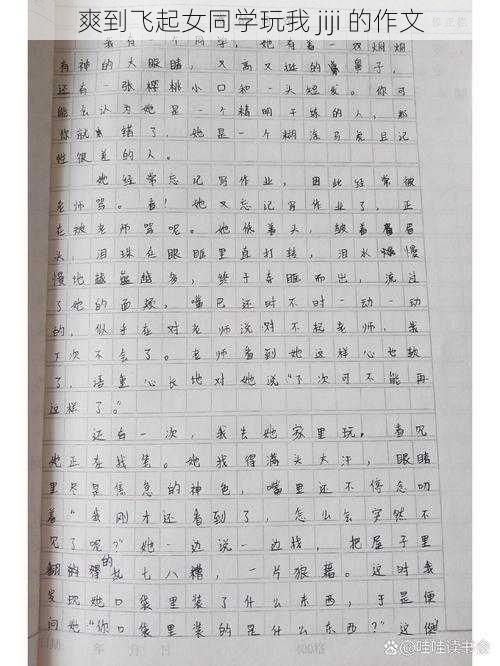 爽到飞起女同学玩我 jiji 的作文
我有一个同学,她有着一双炯炯
有神的大眼睛,又高又挺的鼻子,
还有一张樱桃小口和一头短发。你可
能会认为她是一个精明干练的人,那
你就错了,她是一个糊涂马虎且记
性很差的人。
她经常忘记写作业,因此经常被
老师骂。看!她又忘记写作业了,正
在被老师骂呢。她低着头,皱着眉
头,泪珠在眼眶里直打转,泪水慢
慢地越越多,终于夺眶而出,流过
了她的面颊,嘴巴还时不时一动一动
的,似乎在对老师说对不起老师,我
下次不会了。老师看到她这样心也软
了,语重心长地对她说“下次可不能再
这样了。”
还有一次,我去她家里玩。看见
她正在找笔。她找得满头大汗,眼睛
里尽是焦急的神色,嘴里还不停念叨
着“我刚才还看到了,怎么会突然不
见了呢?”她一边说一边找,把屋子里
翻得乱七八糟,一片狼藉。这时我
发现她口袋里装了什么东西,于是便
问她“你口袋里装的是什么东西?”这便
年 月 日
400格
@哇哇读书会